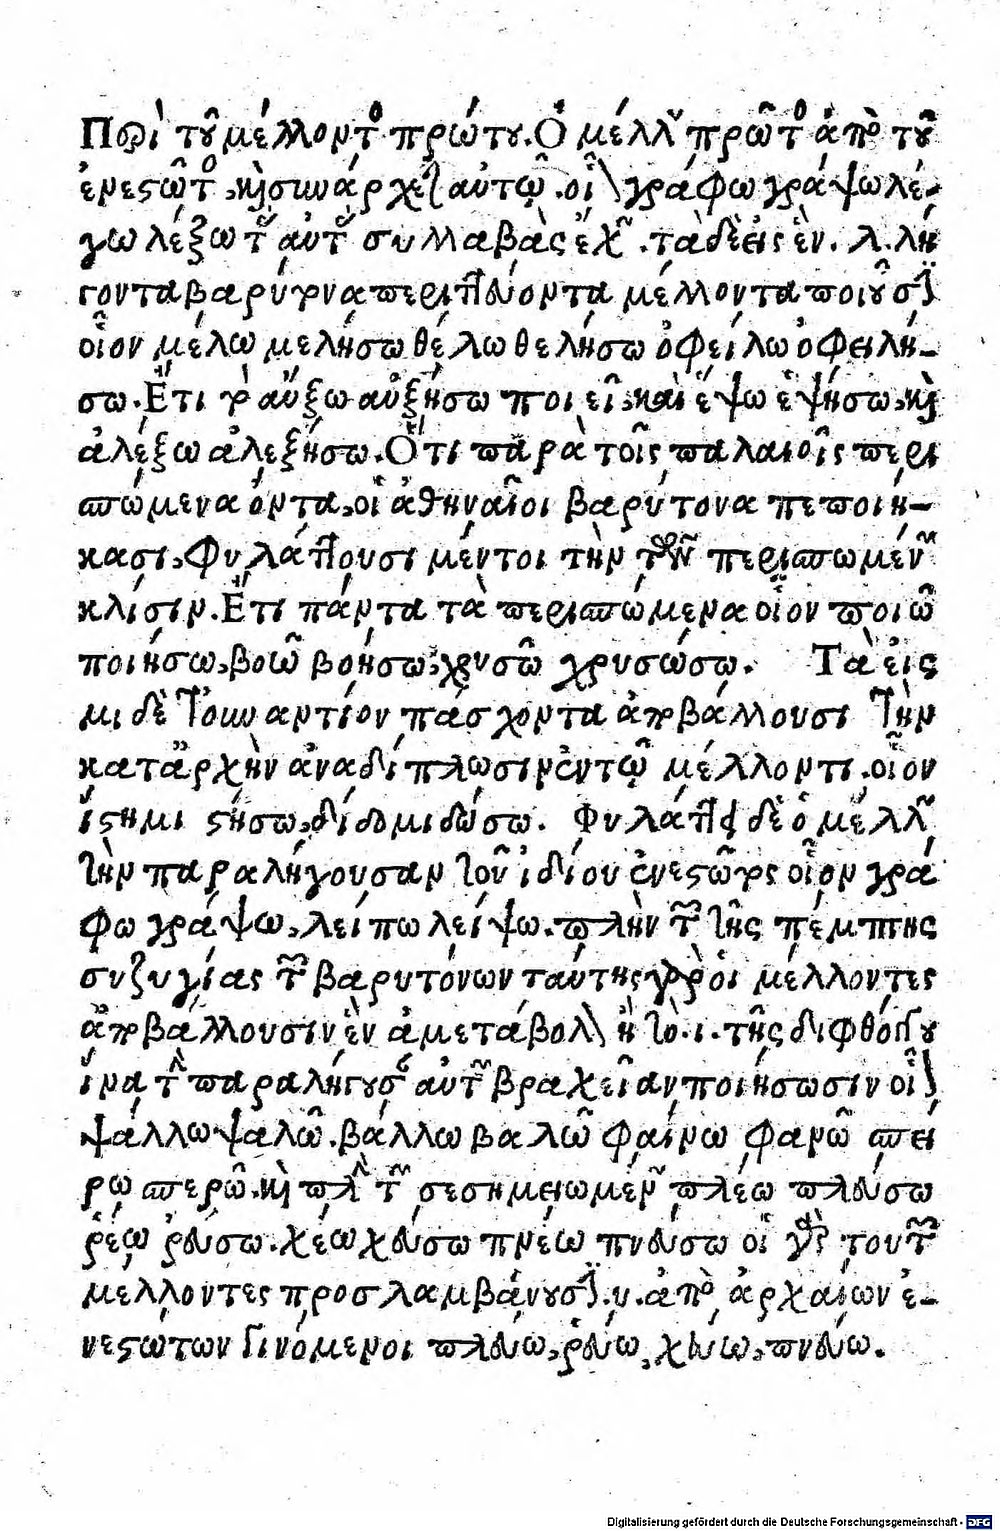 Περὶ τοῦ μέλλοντος πρώτου. Ὁ μέλλων πρῶτος ἀπὸ τοῦ
ἐνεστῶτος, καὶ συνάρχεται αὐτῷ. οἷον γράφω γράψω λέ-
γω λέξω τὰς αὐτὰς συλλαβὰς ἔχων. τὰ δὲ εἰς ἓν. λ. λή
γοντα βαρύτονα περιττεύοντα μέλλοντα ποιοῦσιν
οἷον μέλω μελήσω θέλω θελήσω ὀφείλω ὀφειλή-
σω. Ἔτι τὸ αὔξω αὐξήσω ποιεῖ, καὶ ἕψω ἑψήσω, καὶ
ἀλέξω ἀλεξήσω. Ὅτι παρὰ τοῖς παλαιοῖς περι
σπώμενα ὄντα, οἱ ἀθηναῖοι βαρύτονα πεποιή-
κασι, φυλάττουσι μέντοι τὴν τῶν περισπωμένων
κλίσιν. Ἔτι πάντα τὰ περισπώμενα οἷον ποιῶ
ποιήσω, βοῶ βοήσω, χρυσῶ χρυσώσω. Τὰ εἰς
μι δὲ τοὐναντίον πάσχοντα ἀποβάλλουσι τὴν
κατἄρχὴν ἀναδίπλωσιν ἐν τῷ μέλλοντι. οἷον
ἵστημι στήσω, δίδωμι δώσω. Φυλάττει δὲ ὁ μέλλων
τὴν παραλήγουσαν τοῦ ἰδίου ἐνεστῶτος οἷον γρά
φω γράψω, λείπω λείψω. πλὴν τῶν τῆς πέμπτης
συζυγίας τῶν βαρυτόνων ταύτης γὰρ οἱ μέλλοντες
ἀποβάλλουσιν ἓν ἀμετάβολον ἢ τὸ. ι. τῆς διφθόγγου
ἵνα τὴν παραλήγουσαν αὐτῶν βραχεῖαν ποιήσωσιν οἷον
ψάλλω ψαλῶ. βάλλω βαλῶ φαίνω φανῶ σπεί
ρω σπερῶ. καὶ πλὴν τῶν σεσημειωμένων πλέω πλεύσω
ῥέω ῥεύσω. χέω χεύσω πνέω πνεύσω οἱ γὰρ τούτων
μέλλοντες προσλαμβάνουσιν. υ. ἀπὸ ἀρχαίων ἐ-
νεστώτων γινόμενοι πλεύω, ῥεύω, χεύω, πνεύω.
Digitalisierung gefördert durch die Deutsche Forschungsgemeinschaft - DFG